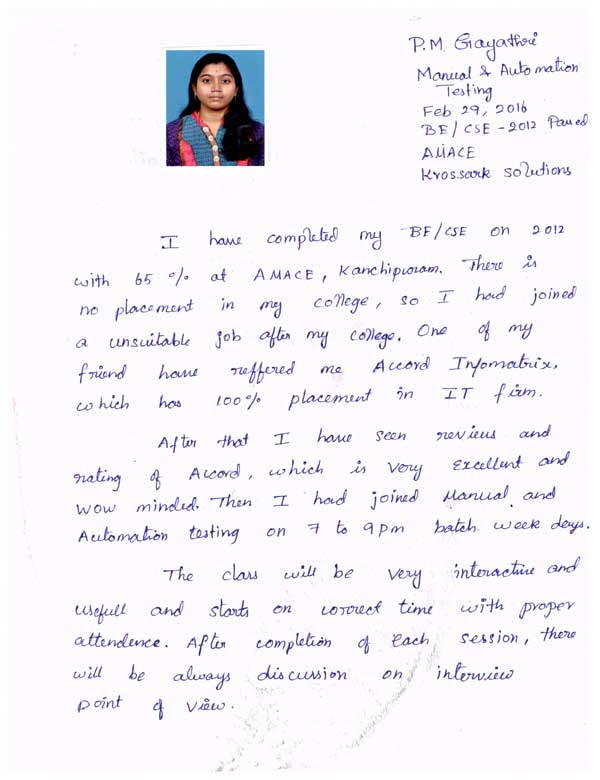 P.M. Gayathri
Manual & Automation
Testing
Feb 29, 2016
BE/CSE - 2012 Passed
AMACE
Krossark Solutions
I have completed my BE/CSE on 2012
with 65 % at AMACE, Kanchipuram. There is
no placement in my college, so I had joined
a unsuitable job after my college. One of my
friend have reffered me Accord Infomatrix,
which has 100% placement in IT firm.
After that I have seen reviews and
rating of Accord, which is very Excellent and
wow minded. Then I had joined Manual and
Automation testing on 7 to 9 pm batch week days.
The class will be very interactive and
usefull and starts on correct time with proper
attendence. After completion of Each session, there
will be always discussion on interview
point of view.